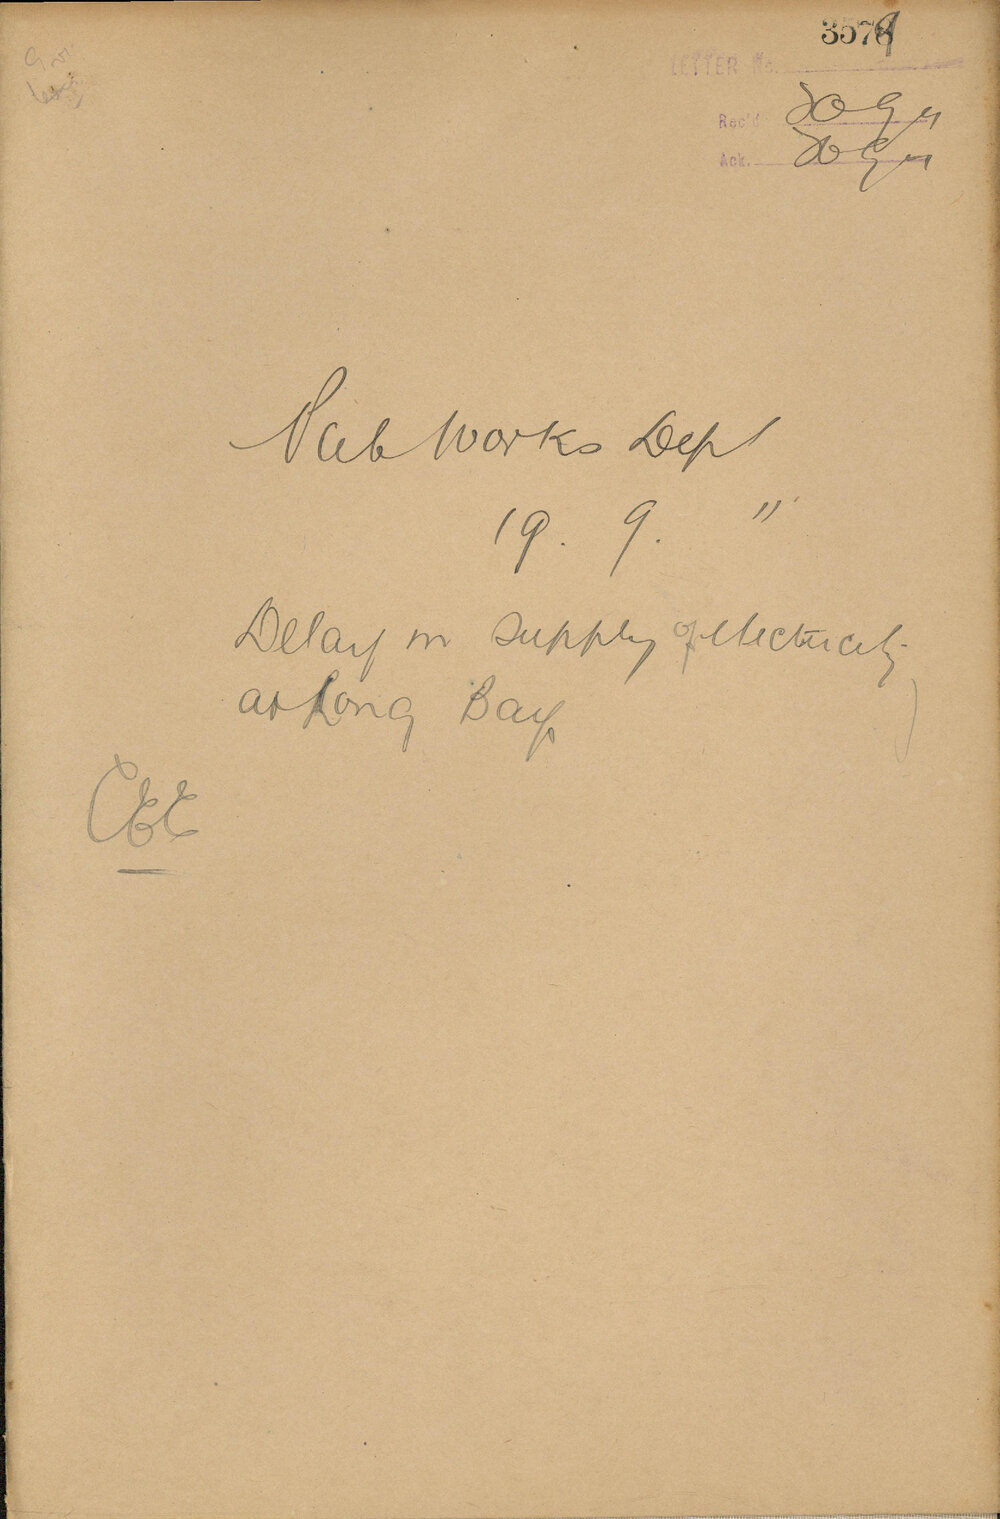 3579
LETTER No.
Rec'd 20 9 11
Ack. 20 9 11
Pub Works Dept
19. 9. "
Delay in supply of electricity
at Long Bay
CEE